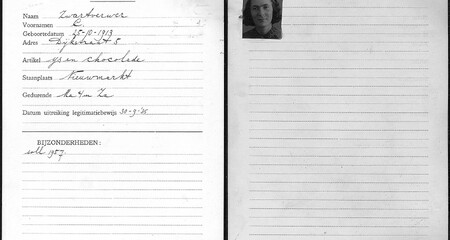 Naam Zwartverwer
Voornamen C.
Geboortedatum 25-12-1913
Adres Dijkstraat 8
Artikel ijs en chocolade
Staanplaats Nieuwmarkt
Gedurende Ma t/m Za
Datum uitreiking legitimatiebewijs 30-9-'25
BIJZONDERHEDEN:
1957.